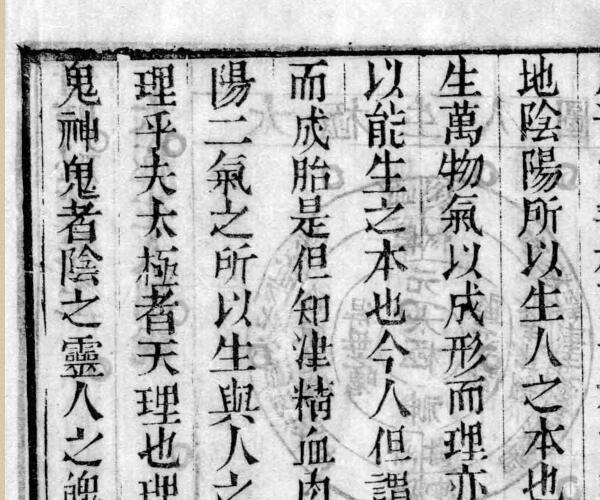 地陰陽所以生人之本也
生萬物氣以成形而理亦
以能生之本也今人但謂
而成胎是但知津精血肉
陽二氣之所以生與人之
理乎夫太極者天理也理
鬼神鬼者陰之靈人之魄